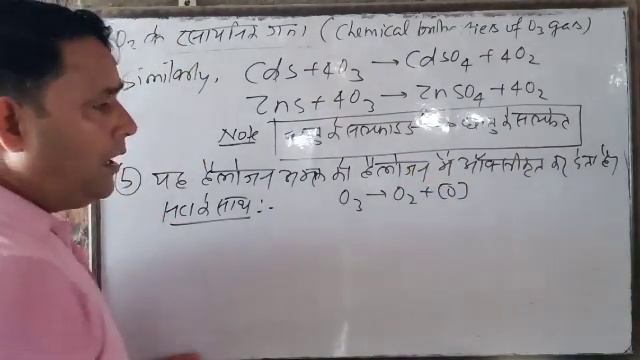 O₃ के रसायनिक गुण। (Chemical of O₃ gas)
Similarly, Cds+4O₃ → CdSO₄+4O₂
Zns+4O₃ → ZnSO₄+4O₂
Note धातु के सल्फाइड → धातु के सल्फेट
5 यह हैलोजन अम्ल को हैलोजन में ऑक्सीकृत कर देता है।
के साथ :- O₃ → O₂ + [O]